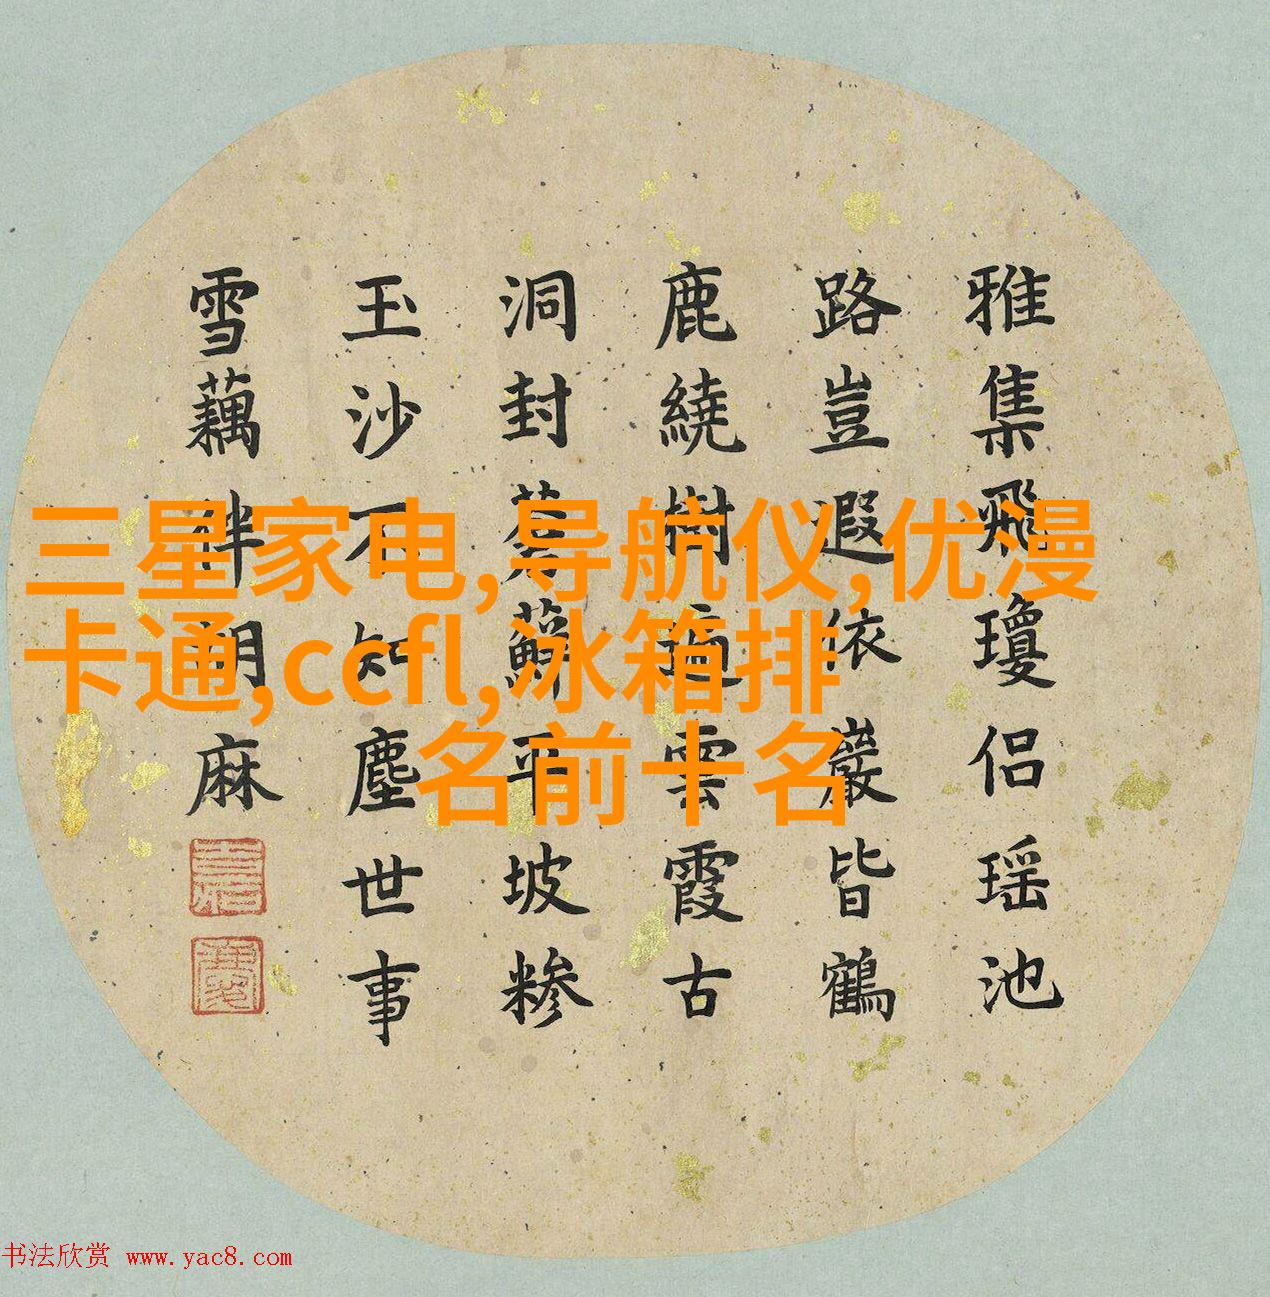 雅集飛瓊侣瑶池
路豈遐依巖皆鶴
鹿繞樹遍雲霞古
洞封蒼蘚平坡糁
玉沙不知塵世事
雪藕伴胡麻
三星家电,导航仪,优漫
卡通,ccfl,冰箱排
名前十名
书法欣赏 www.yac8.com